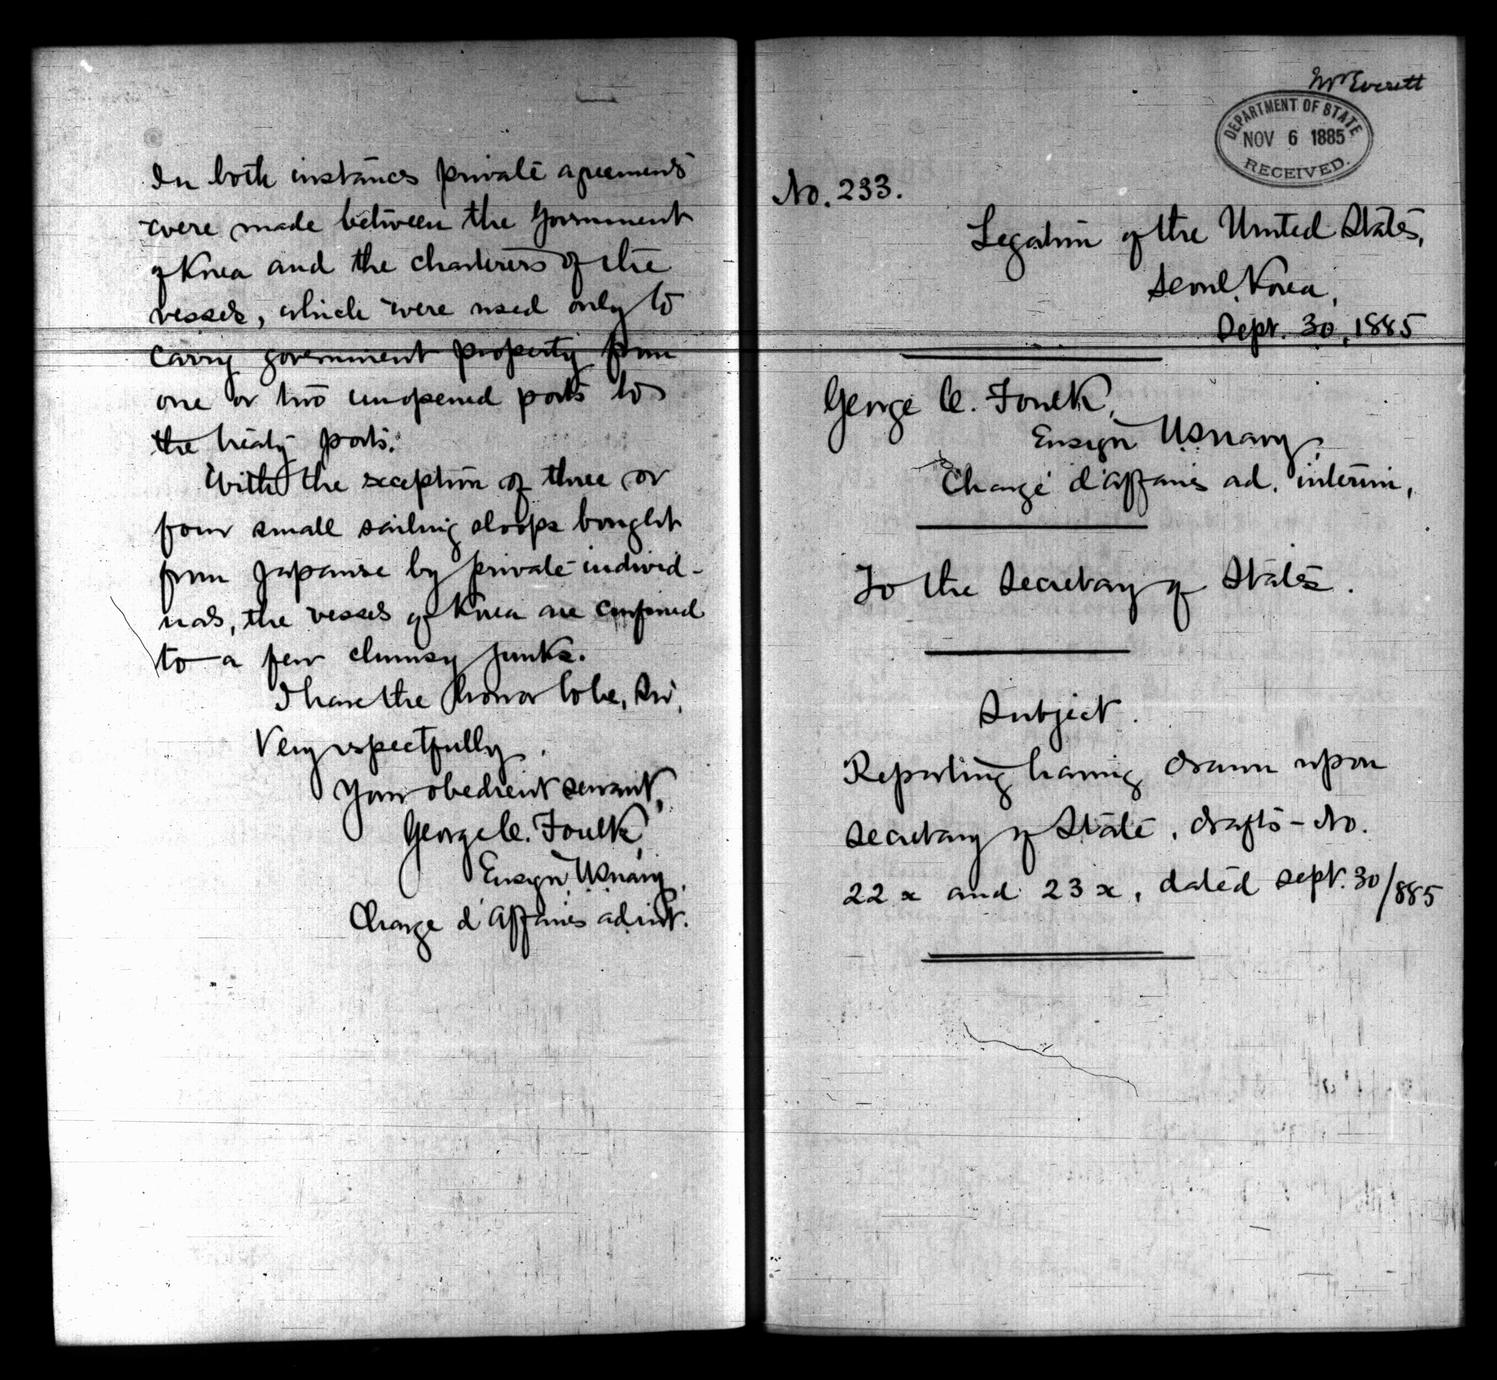 In both instances private agreements
were made between the Government
of Korea and the charterers of the
vessels, which were used only to
carry government property from
one or two unopened ports to
the treaty ports.
With the exception of three or
four small sailing sloops bought
from Japanese by private individ-
uals, the vessels of Korea are confined
to a few clumsy junks.
I have the honor to be, Sir,
Very respectfully,
Your obedient servant,
George C. Foulk,
Ensign, US navy,
Chargé d'Affaires ad int.
Mr Everett
DEPARTMENT OF STATE
NOV 6 1885
RECEIVED.
No. 233.
Legation of the United States,
Seoul, Korea,
Sept. 30, 1885
George C. Foulk,
Ensign US navy,
Chargé d'affaires ad. interim,
To the Secretary of State.
Subject.
Reporting having drawn upon
Secretary of State, drafts - No.
22 x and 23 x, dated Sept. 30/885